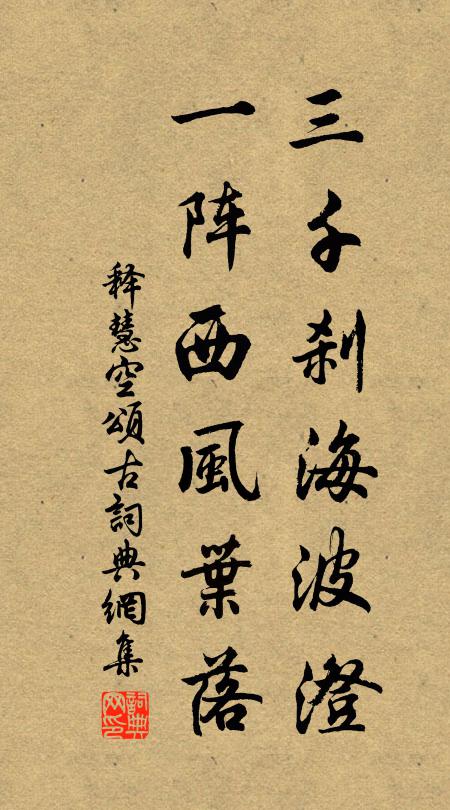 三千刹海波澄
一阵西風葉落
释慧空頌古詞典網集
詞典网印